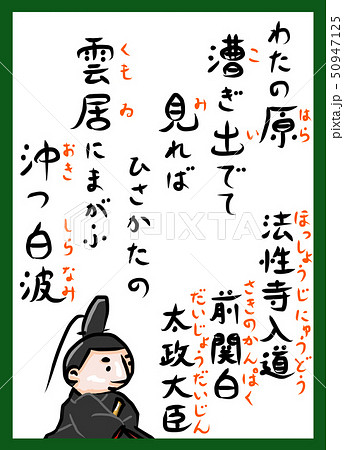 わたの原
はら
漕ぎ出でて
こ い
見れば
み
ひさかたの
雲居にまがふ
くもゐ
沖つ白波
おき しらなみ
法性寺入道
ほっしょうじにゅうどう
前関白
さきのかんぱく
太政大臣
だいじょうだいじん
PIXTA
pixta.jp - 50947125